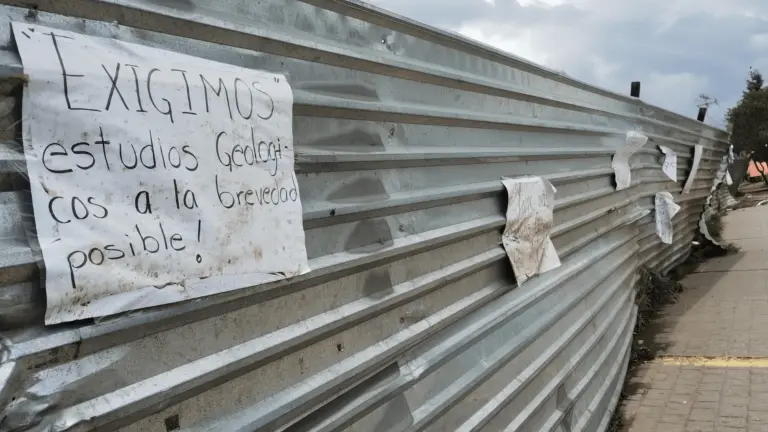 "EXIGIMOS"
estudios Geologi-
cos a la brevedad
posible!